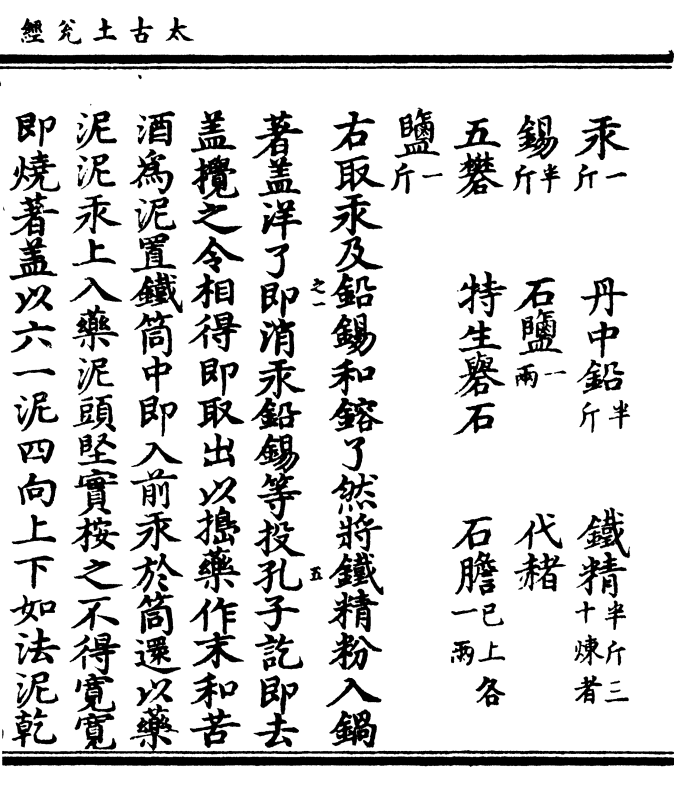 太古土兊經
汞一斤　丹中鉛半斤　鐵精半斤三十煉者
錫半斤　石鹽一兩　代赭
五礬　特生礜石　石膽已上各一兩
鹽一斤
右取汞及鉛錫和鎔了然將鐵精粉入鍋
之一　五
著盖洋了即消汞鉛錫等投孔子訖即去
盖攪之令相得即取出以搗藥作末和苦
酒爲泥置鐵筒中即入前汞於筒還以藥
泥泥汞上入藥泥頭堅實桉之不得寛寛
即燒著盖以六一泥四向上下如法泥乾